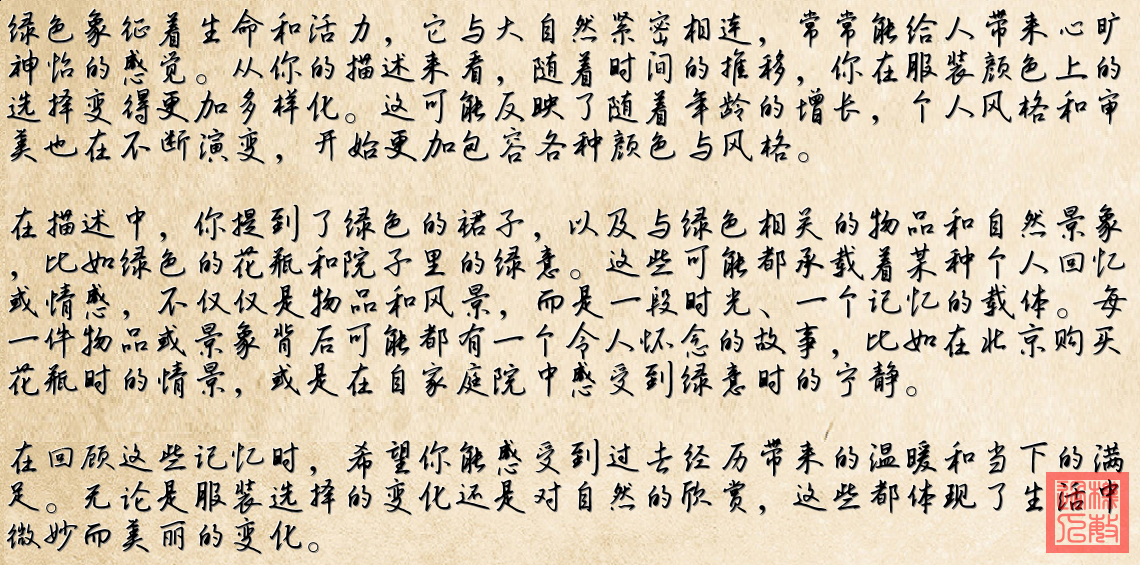 绿色象征着生命和活力，它与大自然紧密相连，常常能给人带来心旷
神怡的感觉。从你的描述来看，随着时间的推移，你在服装颜色上的
选择变得更加多样化。这可能反映了随着年龄的增长，个人风格和审
美也在不断演变，开始更加包容各种颜色与风格。

在描述中，你提到了绿色的裙子，以及与绿色相关的物品和自然景象
，比如绿色的花瓶和院子里的绿意。这些可能都承载着某种个人回忆
或情感，不仅仅是物品和风景，而是一段时光、一个记忆的载体。每
一件物品或景象背后可能都有一个令人怀念的故事，比如在北京购买
花瓶时的情景，或是在自家庭院中感受到绿意时的宁静。

在回顾这些记忆时，希望你能感受到过去经历带来的温暖和当下的满
足。无论是服装选择的变化还是对自然的欣赏，这些都体现了生活中
微妙而美丽的变化。